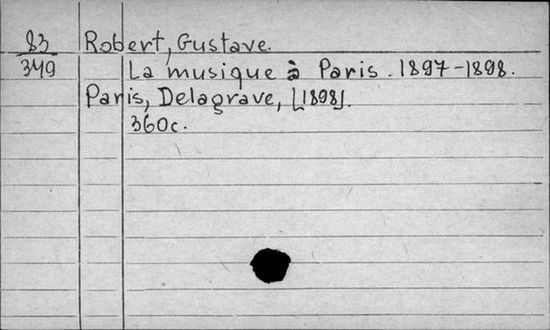 83 Robert, Gustave.
349 La musique à Paris. 1897-1898.
Paris, Delagrave, [1898].
360c.